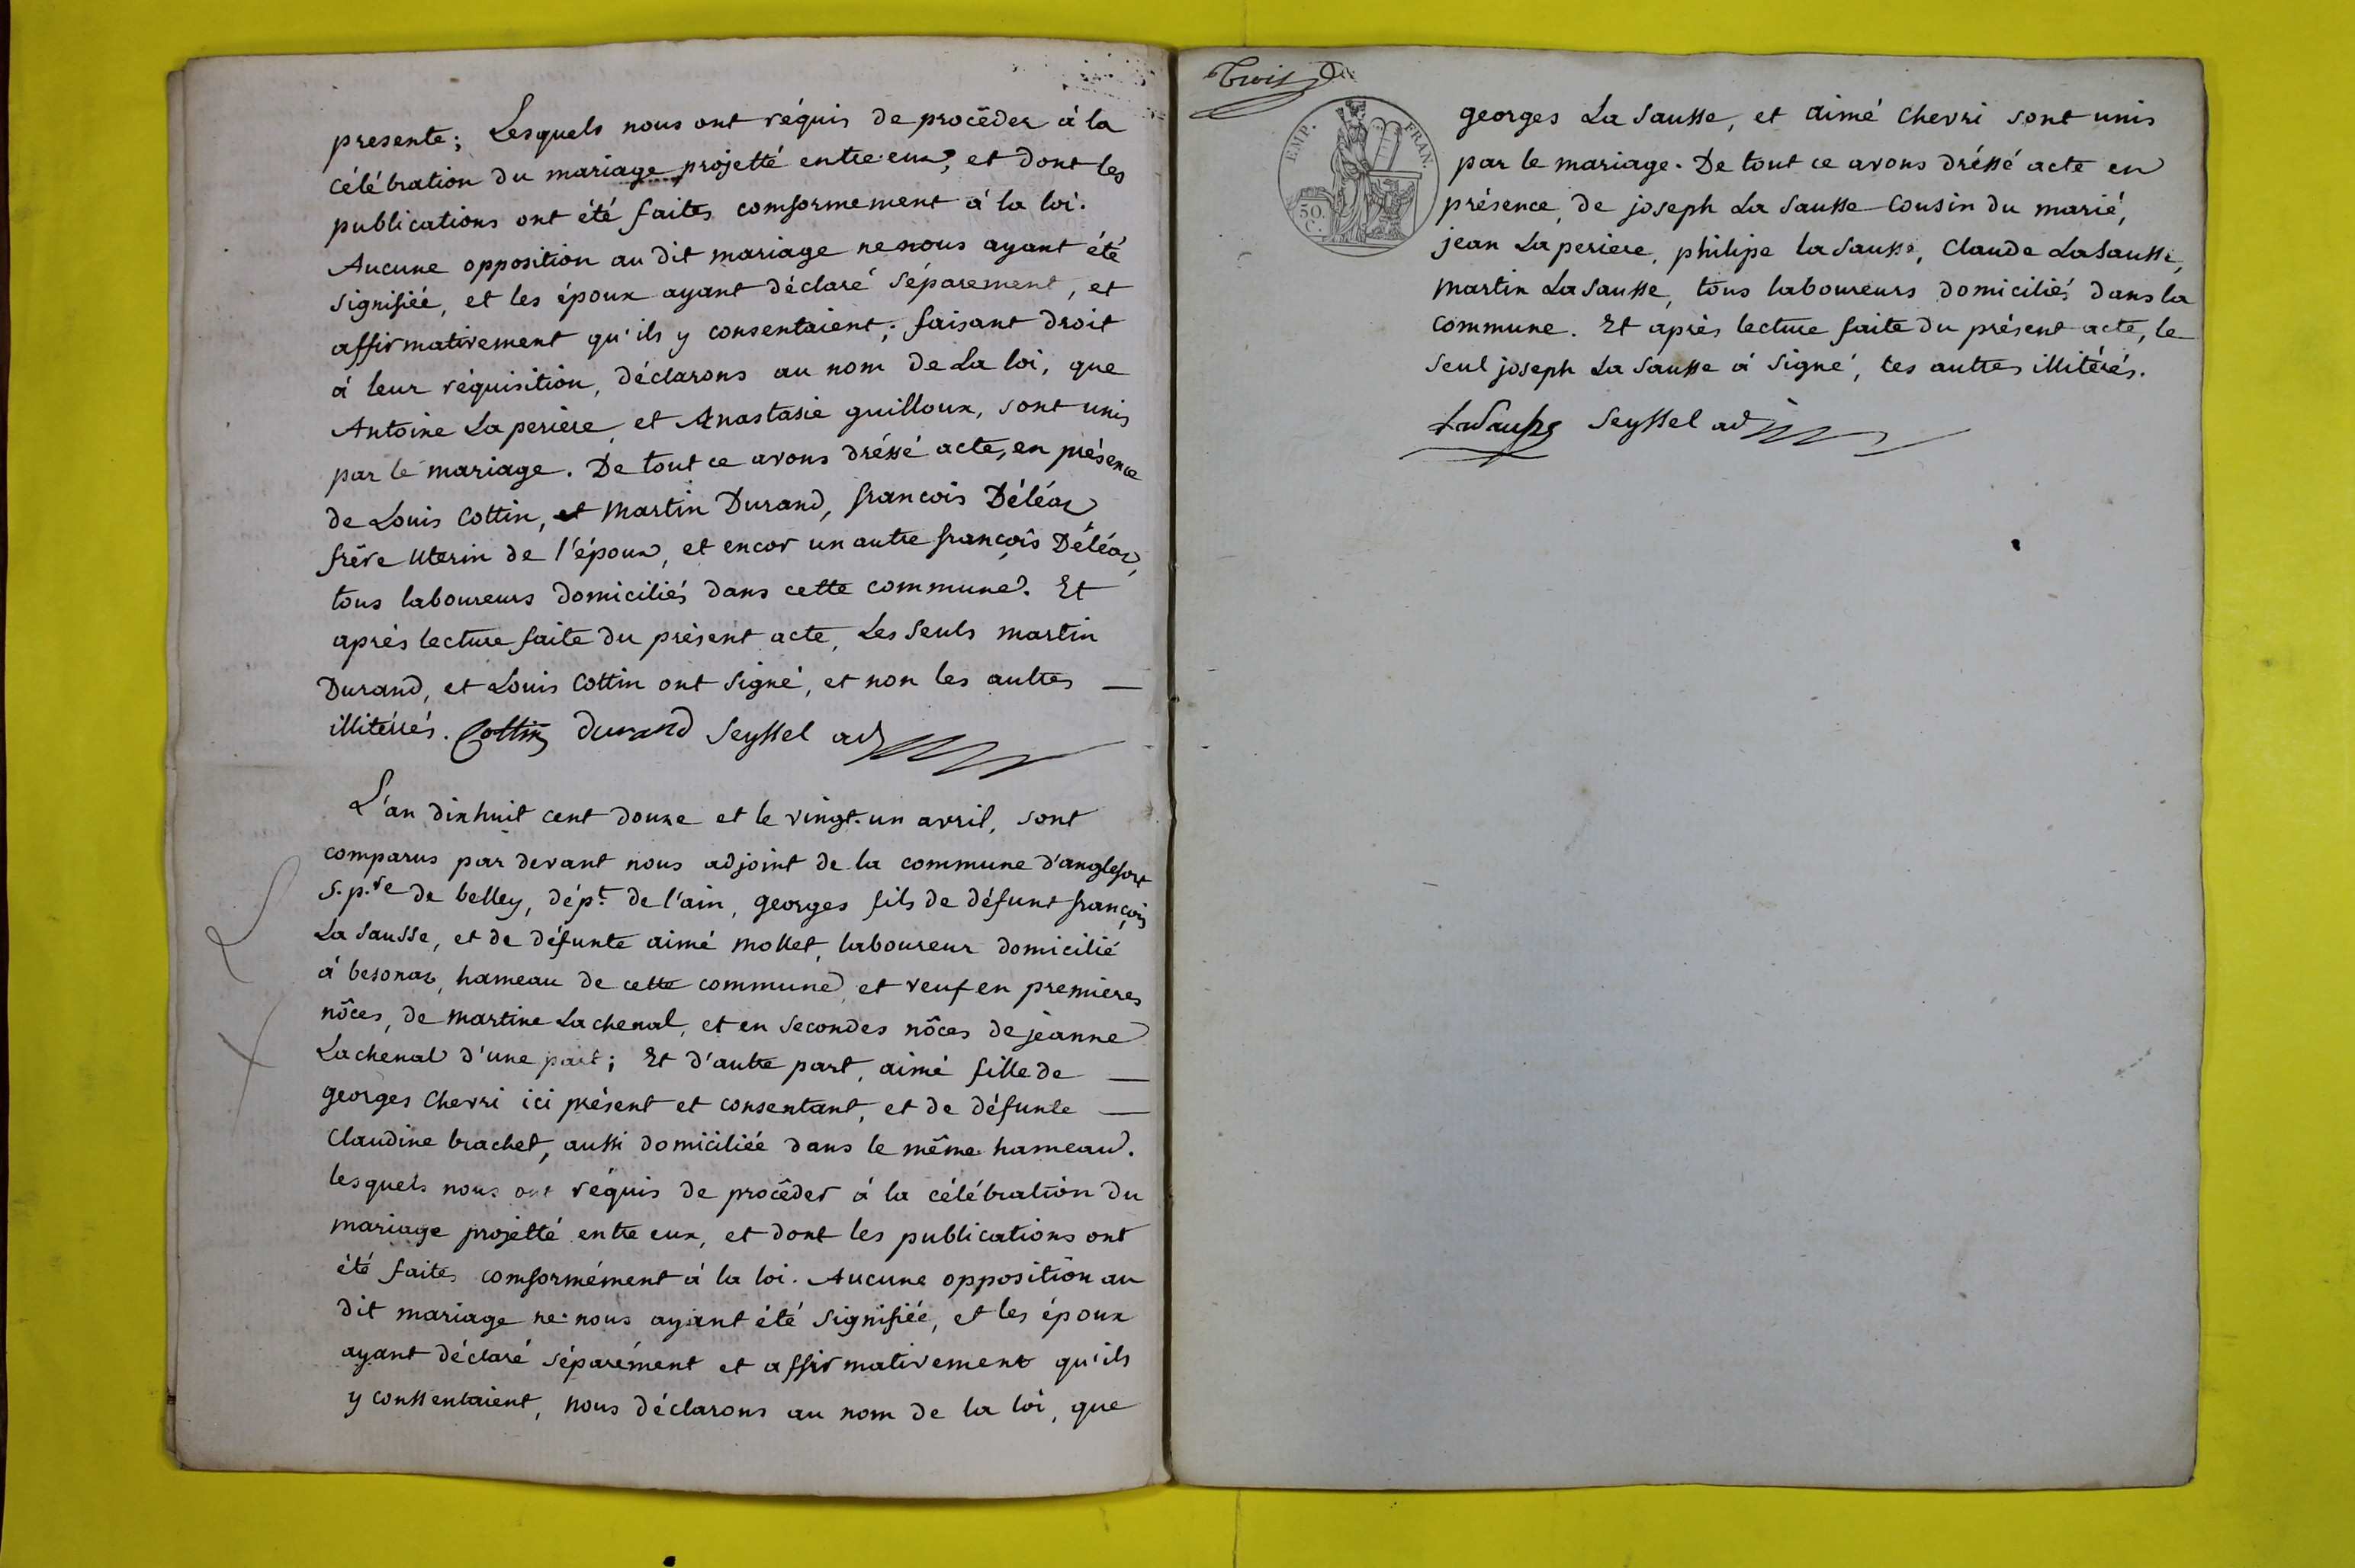 presente; Lesquels nous ont réquis de procêder à la
célébration du mariage projetté entre eux, et dont les
publications ont été faites comformement à la loi.
Aucune opposition au dit mariage ne nous ayant été
signifiée, et les époux ayant déclaré séparement, et
affirmativement qu'ils y consentaient; faisant droit
à leur réquisition, déclarons au nom de La loi, que
Antoine Laperiere, et Anastasie guilloux, sont unis
par le mariage. De tout ce avons dréssé acte, en présence
de Louis Cottin, et Martin Durand, francois Déléaz
frêre Uterin de l'époux, et encor un autre françois Déléaz,
tous laboureurs domiciliés dans cette commune. Et
après lecture faite du présent acte, Les seuls martin
Durand, et Louis Cottin ont signé, et non les autres —
illitérés. Cottin durand Seyssel adj
L'an dixhuit cent douze et le vingt-un avril, sont
comparus par devant nous adjoint de la commune d'anglefort
s.p.re de belley, dép.t de l'ain, georges fils de défunt françois
La Sausse, et de défunte aimé mollet, laboureur domicilié
à besonas, hameau de cette commune, et veuf en premieres
nôces, de martine Lachenal, et en secondes nôces de jèanne
Lachenal d'une part; Et d'autre part, aimé fille de —
georges Chevri ici présent et consentant, et de défunte —
Claudine brachet, aussi domiciliée dans le même hameau.
lesquels nous ont réquis de procêder à la célébration du
mariage projetté entre eux, et dont les publications ont
été faites comformément à la loi. Aucune opposition au
dit mariage ne nous ayant été signifiée, et les époux
ayant déclaré séparément et affirmativement qu'ils
y conssentaient, nous déclarons au nom de la loi, que
Trois
EMP. FRAN.
50. C.
georges La Sausse, et aimé Chevri sont unis
par le mariage. De tout ce avons dréssé acte en
présence, de joseph La Sausse cousin du marié,
jean Laperiere, philipe la Sausse, Claude LaSausse,
Martin LaSausse, tous laboureurs domiciliés dans la
commune. Et après lecture faite du présent acte, le
seul joseph La Sausse à signé, les autres illitérés.
LaSausse Seyssel adj